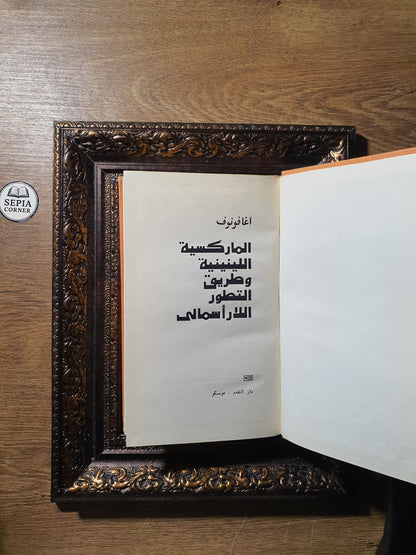 SEPIA
CORNER
اغافونوف
الماركسية
اللينينية
وطريق
التطور
اللارأسمالى
دار التقدم - موسكو